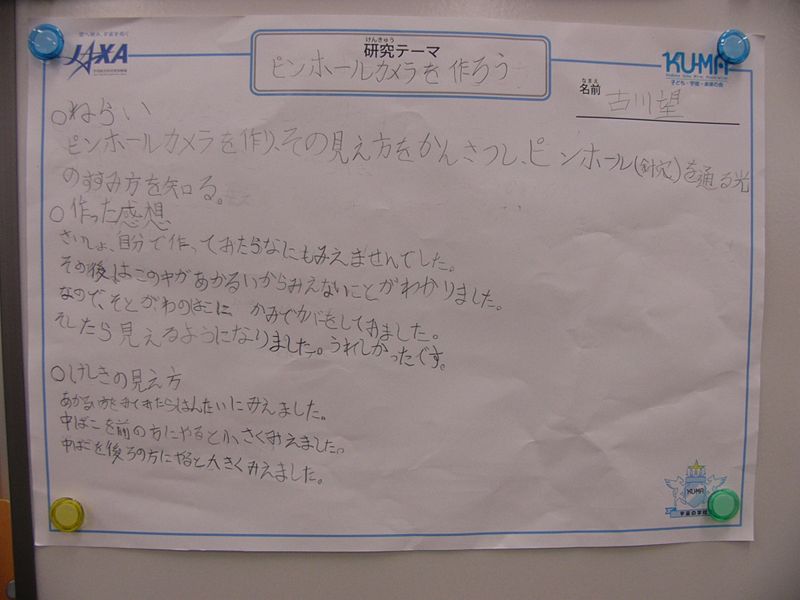 JAXA
けんきゅう
研究テーマ
ピンホールカメラを作ろう
KU-MA
子ども・宇宙・未来の会
なまえ
名前
古川望
○ねらい
ピンホールカメラを作り、その見え方をかんさつし、ピンホール(針穴)を通る光
のすすみ方を知る。
○作った感想
さいしょ、自分で作っておたらなにもみえませんでした。
その後、はこの中があかるいからみえないことがわかりました。
なので、そとがわのはこに かみでカバをしてみました。
そしたら見えるようになりました。うれしかったです。
○けしきの見え方
あかるい方をみてみたらはんたいにみえました。
中ばこを前の方にやると小さくみえました。
中ばこを後ろの方にやると大きくみえました。
KU-MA
宇宙の学校